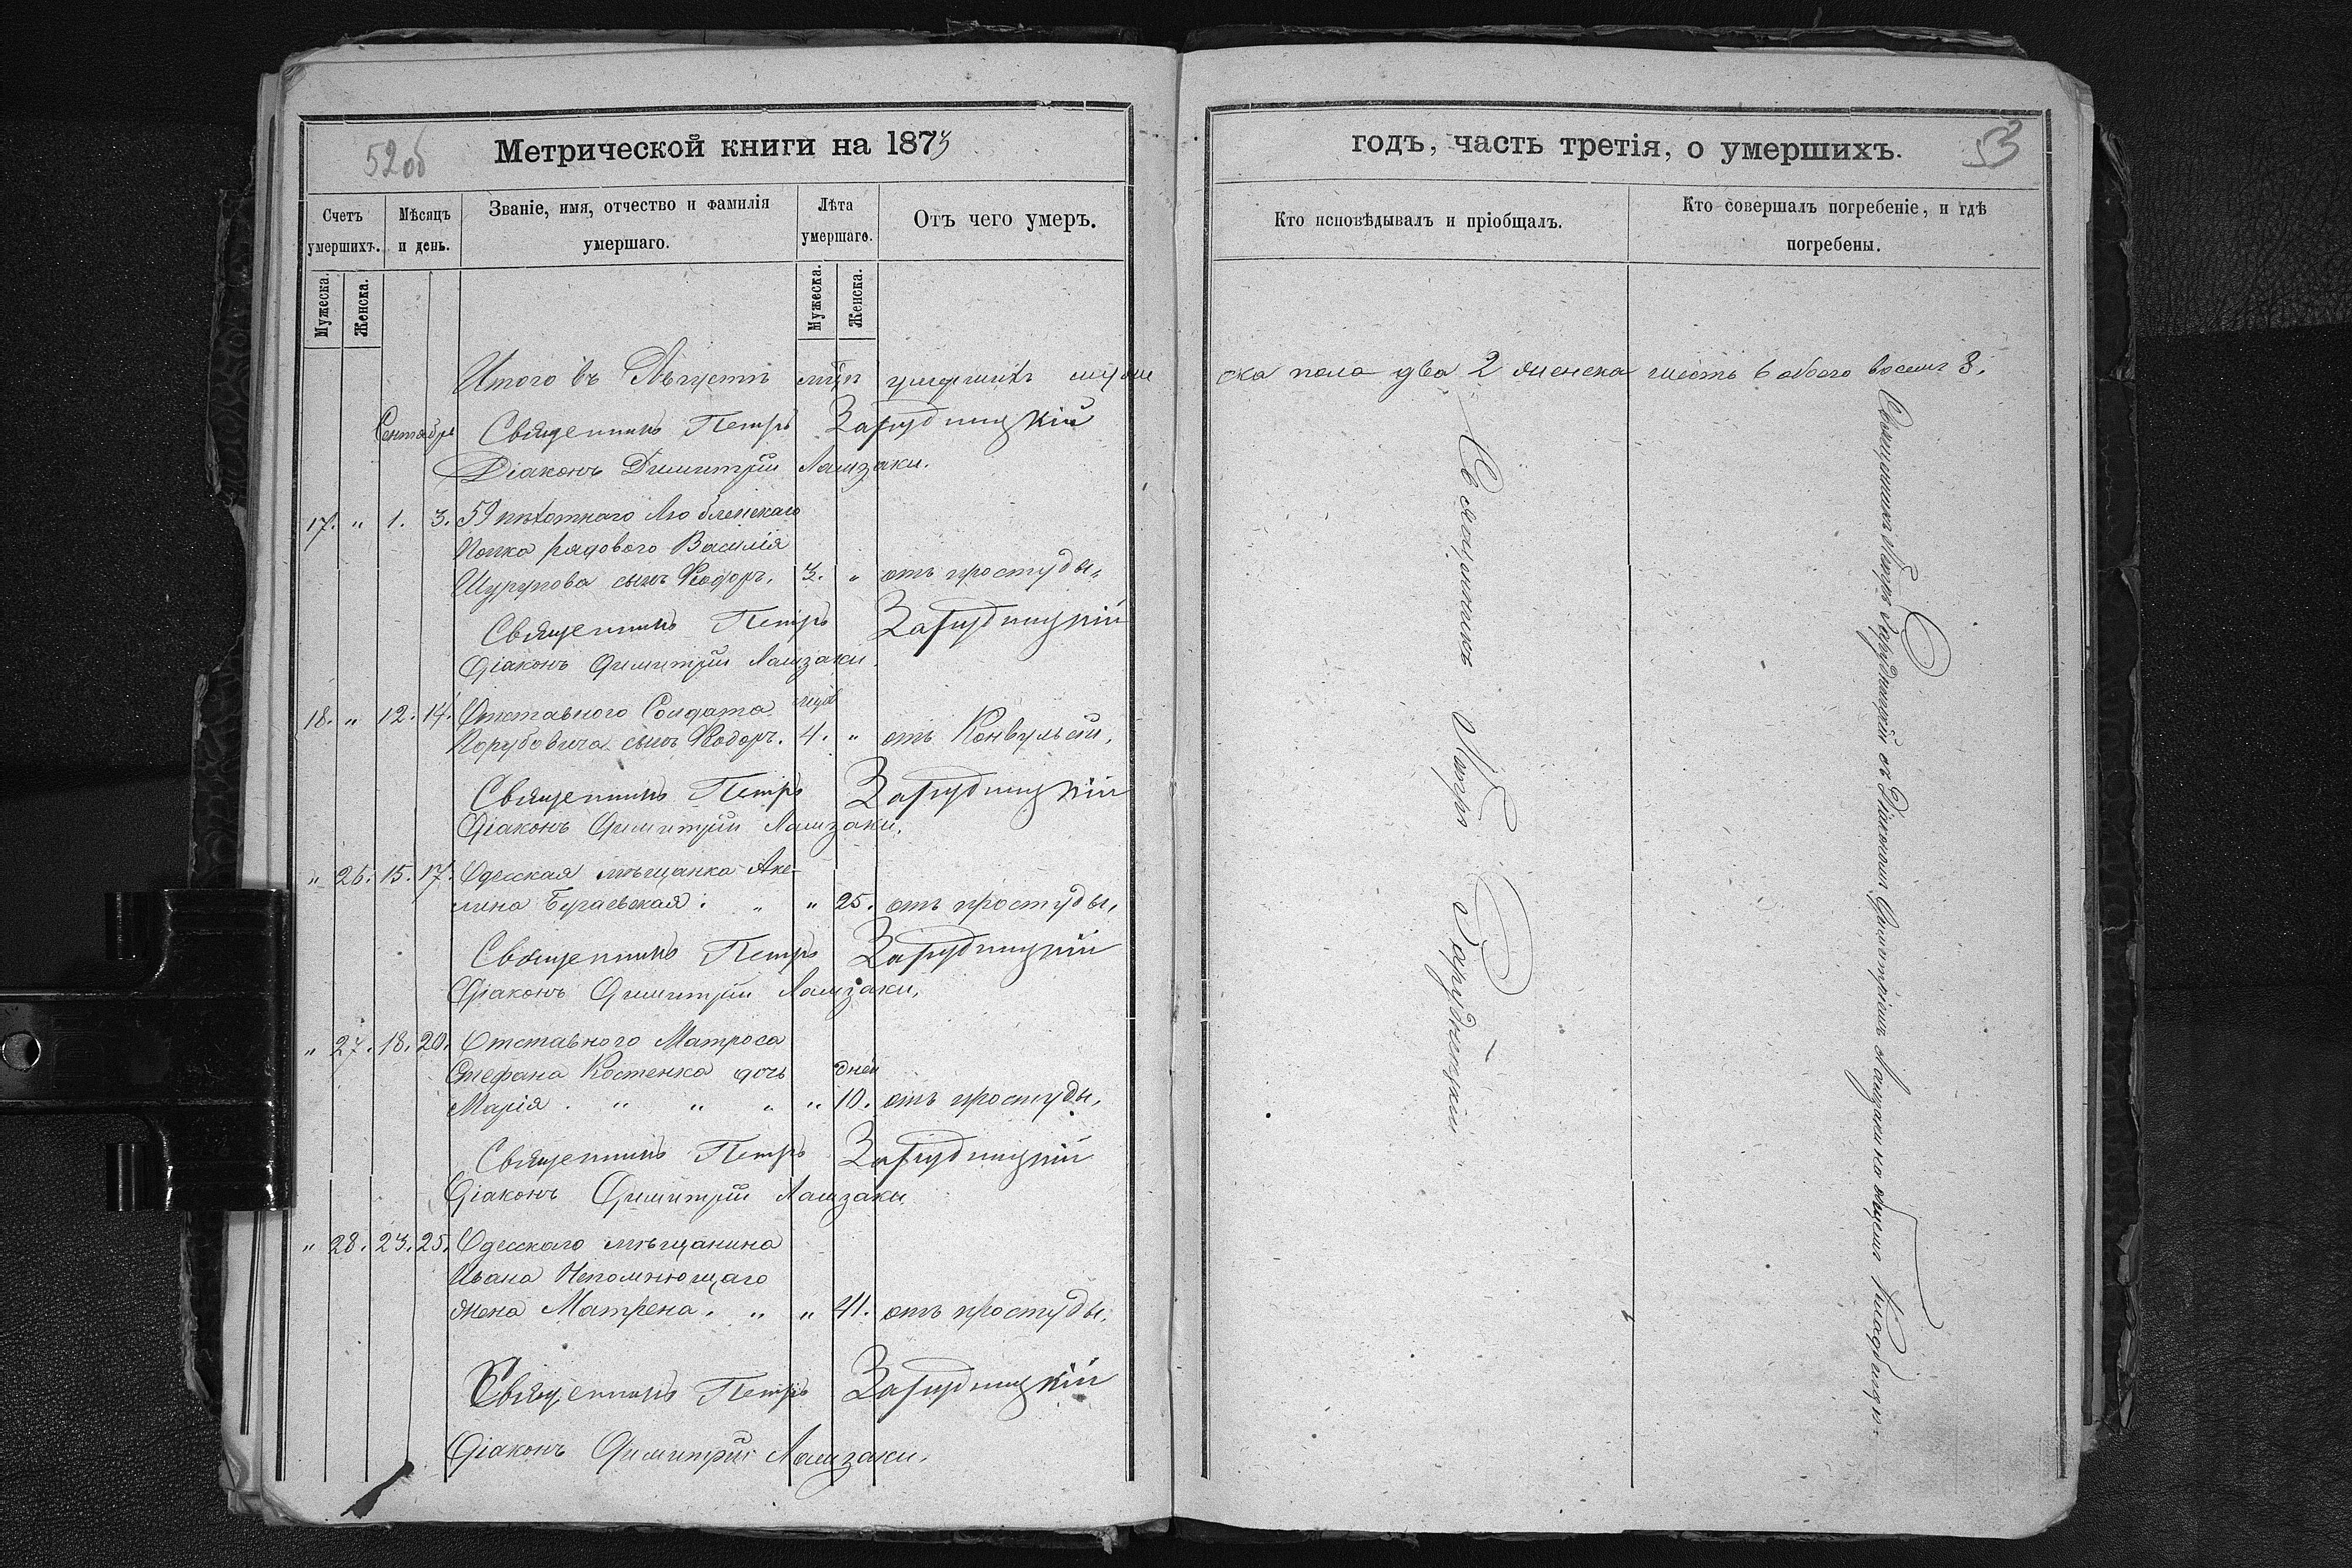 52об
Метрической книги на 1873
Счетъ умершихъ.
Мѣсяцъ и день.
Званіе, имя, отчество и фамилія умершаго.
Лѣта умершаго.
Отъ чего умеръ.
Мужеска.
Женска.
Мужеска.
Женска.
Итого въ Августѣ мцѣ умершихъ муже
Сентябрь
Священникъ Петръ Зарудницкій
Діаконъ Димитрій
17. " 1. 3. 59 пѣхотнаго Любленскаго
Полка рядового Василія
Шурупова сынъ Ѳеодоръ. 3. " отъ простуды,
Священникъ Петръ Зарудницкій
Діаконъ Димитрій
18. " 12. 14. Отставного Солдата
сынъ Ѳеодоръ. 4. " отъ Конвульсій,
Священникъ Петръ Зарудницкій
Діаконъ Димитрій
" 26. 15. 17. Одесская мѣщанка Аке-
лина " " 25. отъ простуды,
Священникъ Петръ Зарудницкій
Діаконъ Димитрій
" 27. 18. 20. Отставного Матроса
Стефана Костенка дочь дней
Марія. " " " " 10. отъ простуды,
Священникъ Петръ Зарудницкій
Діаконъ Димитрій
" 28. 23. 25. Одесскаго мѣщанина
Ивана Непомнющаго
жена Матрена. " " 41. отъ простуды,
Священникъ Петръ Зарудницкій
Діаконъ Димитрій
годъ, часть третія, о умершихъ.
53
Кто исповѣдывалъ и пріобщалъ.
Кто совершалъ погребеніе, и гдѣ погребены.
ска пола два 2 женска шесть 6 обоего восемь 8.
Священникъ Петръ Зарудницкій
Священникъ Петръ Зарудницкій съ Діакономъ Димитріемъ на общемъ кладбищѣ.